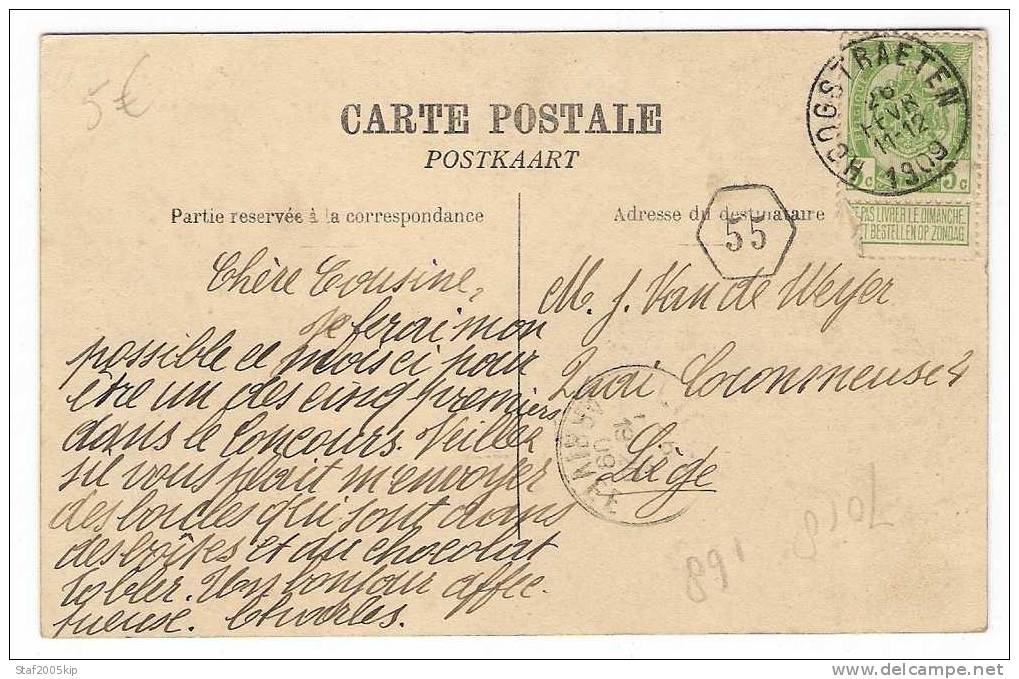 5€
CARTE POSTALE
POSTKAART
HOOGSTRAETEN
26
FEVR
11-12
1909
5c
PAS LIVRER LE DIMANCHE
T BESTELLEN OP ZONDAG
Partie reservée à la correspondance
Adresse du destinataire
55
Chère Cousine,
Je ferai mon
possible ce mois ci pour
être un des cinq premiers
dans le Concours. Veillez
s'il vous plait m'envoyer
des boucles qui sont dans
des boîtes et du chocolat
Tobler. Un bonjour affec-
tueuse. Charles.
M. J. Van de Weyer
2 Quai Coronmeuse
Liège
1909
7018
891
Staf2005kip
www.delcampe.net